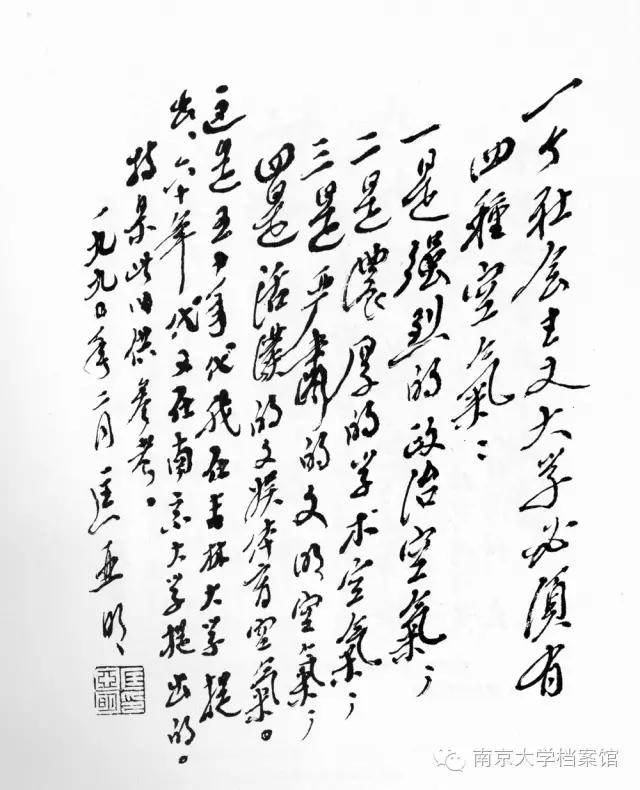 一个社会主义大学必须有
四種空氣：
一是强烈的政治空氣；
二是濃厚的学术空氣；
三是严肃的文明空氣；
四是活潑的文娱体育空氣。
这是五十年代我在吉林大学提
出、六十年代又在南京大学提出的。
特录此以供参考。
一九九〇年二月 匡亚明
匡亞明印
南京大学档案馆